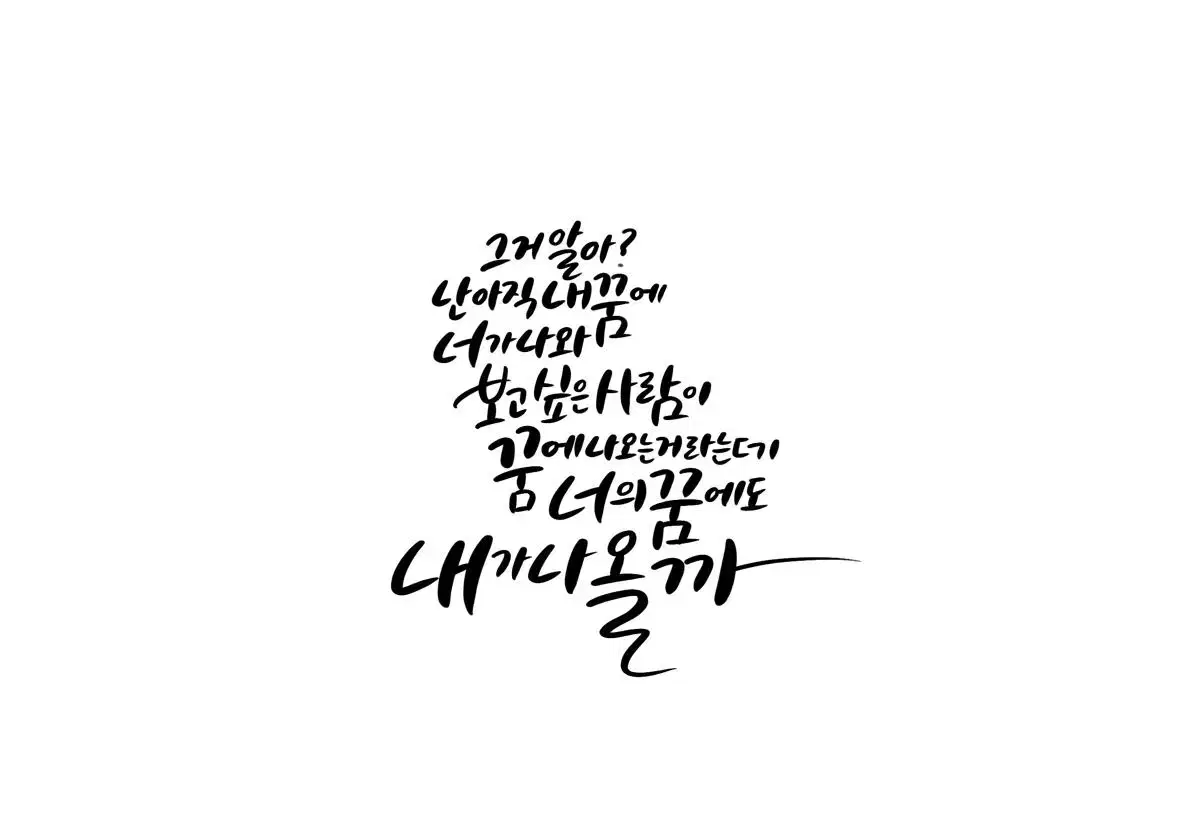 그거 알아?
난 아직 내 꿈에
너가 나와
보고 싶은 사람이
꿈에 나오는거라는데
너의 꿈에도
내가 나올까